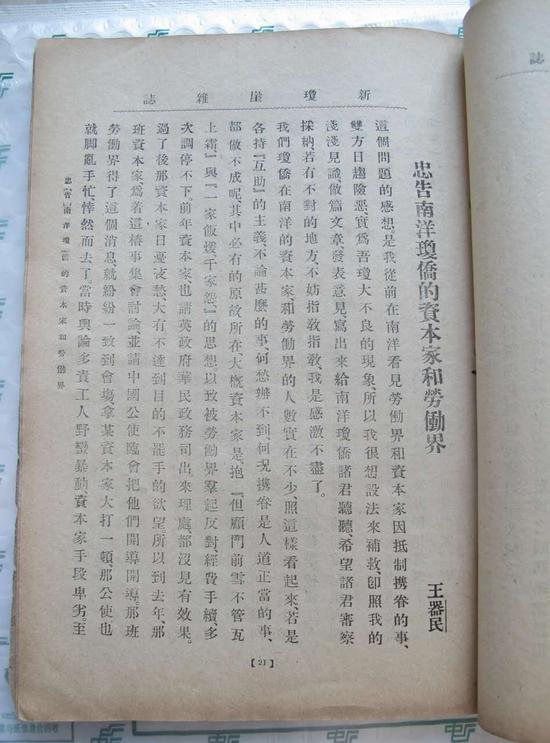 新瓊崖雜誌
忠告南洋瓊僑的資本家和勞働界
王器民
這個問題的感想、是我從前在南洋看見勞働界和資本家因抵制携眷的事、
雙方日趨險惡、實爲吾瓊大不良的現象、所以我很想設法來補救、卽照我的
淺淺見識做篇文章、發表意見、寫出來給南洋瓊僑諸君聽聽、希望諸君審察
採納、若有不對的地方、不妨指敎指敎、我是感激不盡了。
我們瓊僑在南洋的資本家、和勞働界的人數實在不少、照這樣看起來、若是
各持『互助』的主義、不論甚麽的事、何愁辦不到、何况携眷是人道正當的事、
都做不成呢、其中必有的原故所在、大槪資本家是、抱『但顧門前雪不管瓦
上霜』與『一家飯煖千家怨』的思想、以致被勞働界羣起反對、經費手續、多
次調停不下。前年資本家也請英政府華民政務司出來理處、都沒見有效果。
過了後那資本家日憂夜愁、大有不達到目的不罷手的欲望、所以到去年、那
班資本家、爲着這樁事集會討論並請中國公使臨會把他們開導開導、那班
勞働界得了這個消息、就紛紛一致到會塲拿某資本家大打一頓、那公使也
就脚亂手忙、悻然而去了。當時輿論多責工人野蠻暴動、資本家手段卑劣。至
忠告南洋瓊僑的資本家和勞働界
【21】
誌